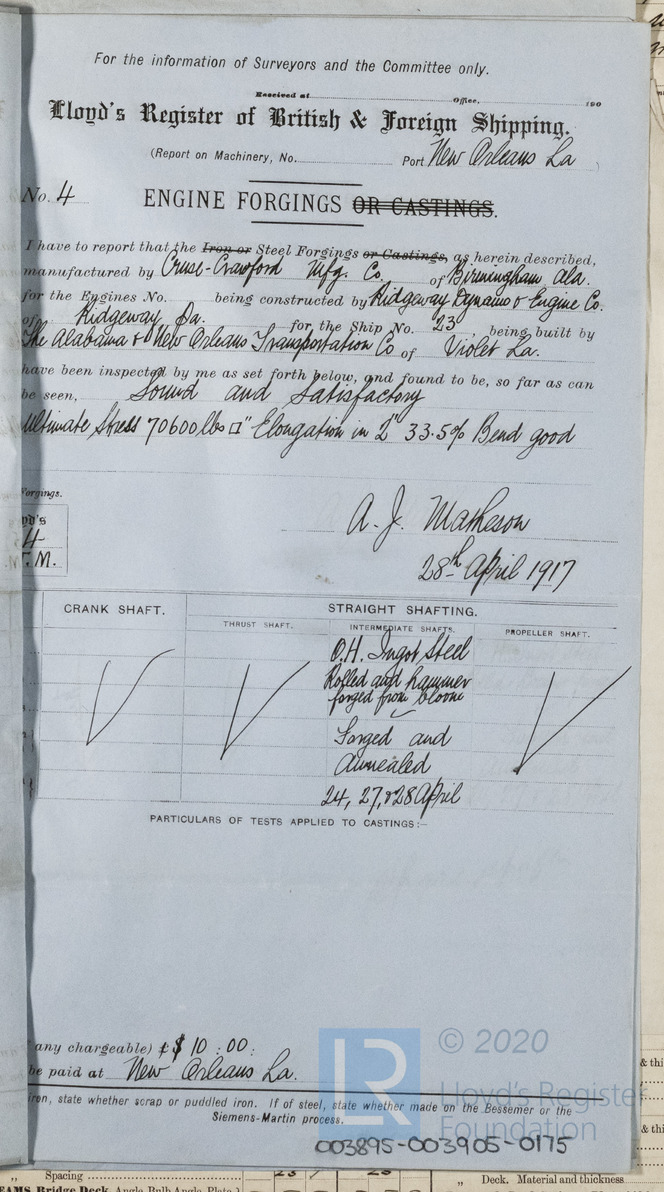 For the information of Surveyors and the Committee only.
Received at Office, 190
Lloyd's Register of British & Foreign Shipping.
(Report on Machinery, No. Port New Orleans La )
No. 4 ENGINE FORGINGS OR CASTINGS.
I have to report that the Iron or Steel Forgings or Castings, as herein described,
manufactured by Cruse-Crawford Mfg. Co. of Birmingham Ala.
for the Engines No. being constructed by Ridgeway Dynamo & Engine Co.
of Ridgeway Pa. for the Ship No. 23, being built by
The Alabama & New Orleans Transportation Co of Violet La.
have been inspected by me as set forth below, and found to be, so far as can
be seen, Sound and Satisfactory
Ultimate Stress 70600 lbs □" Elongation in 2" 33.5% Bend good
Forgings.
yd's
4
T.M.
A. J. Matheson
28th April 1917
CRANK SHAFT. STRAIGHT SHAFTING.
THRUST SHAFT. INTERMEDIATE SHAFTS. PROPELLER SHAFT.
O.H. Ingot Steel
Rolled and hammer
forged from bloom
Forged and
Annealed
24, 27, & 28 April
PARTICULARS OF TESTS APPLIED TO CASTINGS:—
any chargeable) £ $ 10 : 00 :
be paid at New Orleans La.
iron, state whether scrap or puddled iron. If of steel, state whether made on the Bessemer or the
Siemens-Martin process.
LR © 2020
Lloyd's Register
Foundation
003895-003905-0175
& thi
& thi
„ Spacing
„ Deck. Material and thickness
EAMS, Bridge Deck, Angle Bulb Angle, Plate